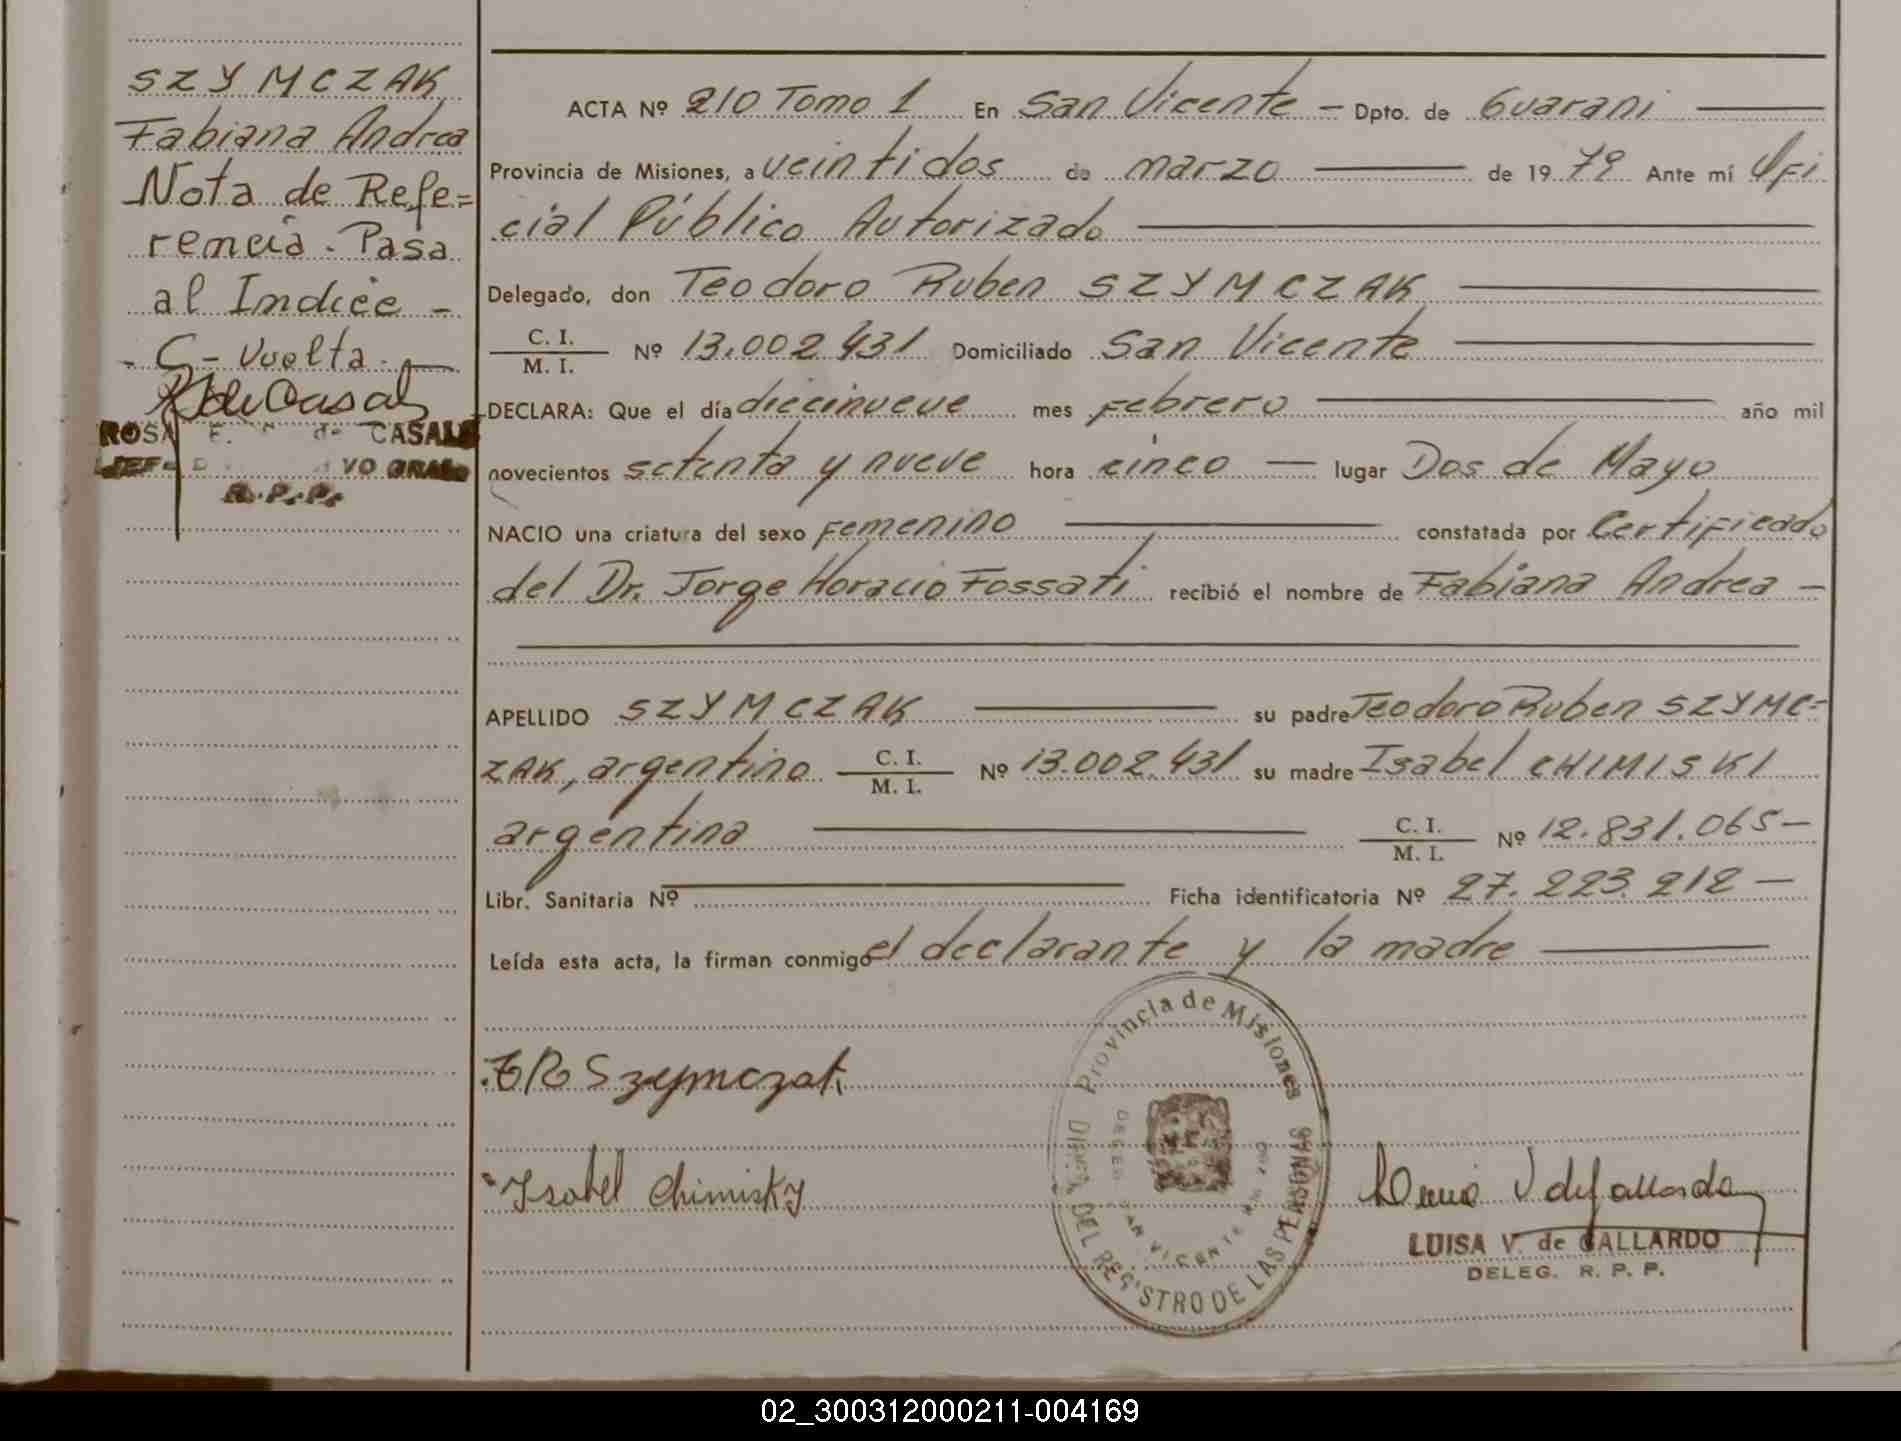 SZYMCZAK
Fabiana Andrea
Nota de Refe=
rencia. Pasa
al Indice -
- C - Vuelta.
R de Casals
ROSA F. de CASALS
VO GRAL.
R.P.P.
ACTA Nº 210 Tomo 1 En San Vicente - Dpto. de Guarani
Provincia de Misiones, a veintidos de marzo de 19 79 Ante mí Ofi
cial Público Autorizado
Delegado, don Teodoro Ruben SZYMCZAK
C. I.
M. I. Nº 13.002.431 Domiciliado San Vicente
DECLARA: Que el día diecinueve mes febrero año mil
novecientos setenta y nueve hora cinco lugar Dos de Mayo
NACIO una criatura del sexo Femenino constatada por Certificado
del Dr. Jorge Horacio Fossati recibió el nombre de Fabiana Andrea -
APELLIDO SZYMCZAK su padre Teodoro Ruben SZYMC=
ZAK, argentino C. I. M. I. Nº 13.002.431 su madre Isabel CHIMISKI
argentina C. I. M. I. Nº 12.831.065-
Libr. Sanitaria Nº Ficha identificatoria Nº 27.223.212 -
Leída esta acta, la firman conmigo el declarante y la madre
TR Szymczak
Isabel Chimisky
Provincia de Misiones
DEL REGISTRO DE LAS PERSONAS
SAN VICENTE
Luisa V de Gallardo
LUISA V. de GALLARDO
DELEG. R. P. P.
02_300312000211-004169